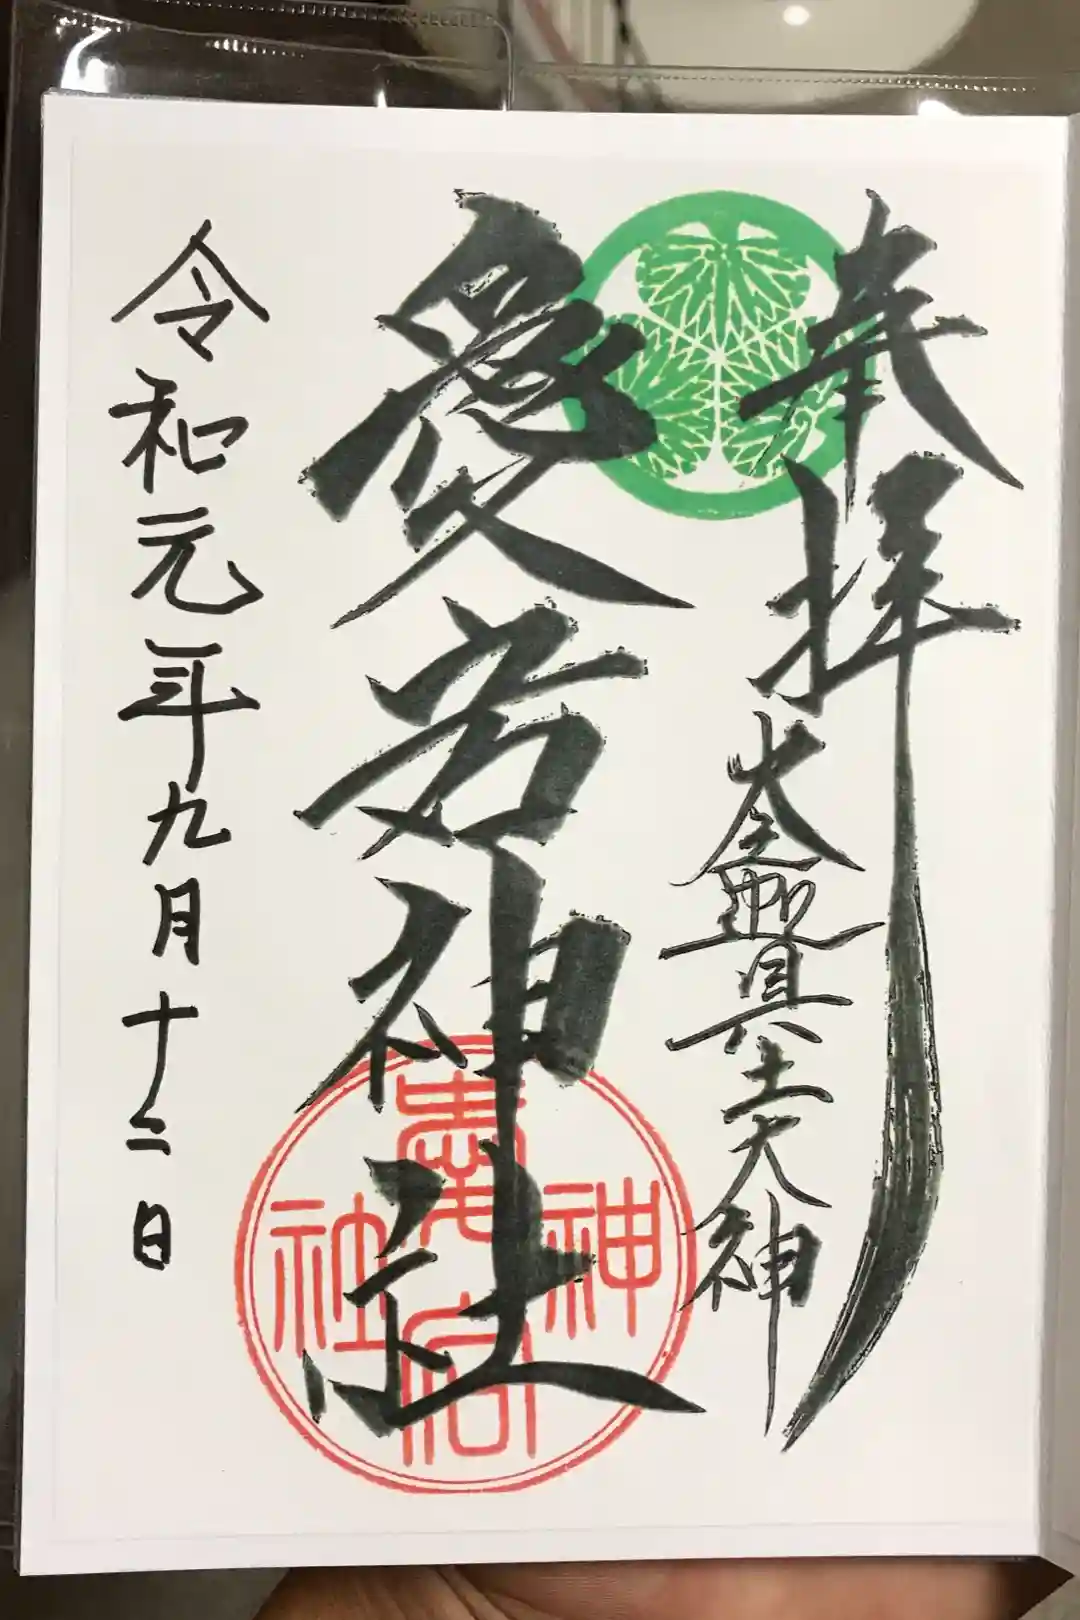 奉拝
火之迦具土大神
愛宕神社
愛宕
神社
令和元年九月十二日